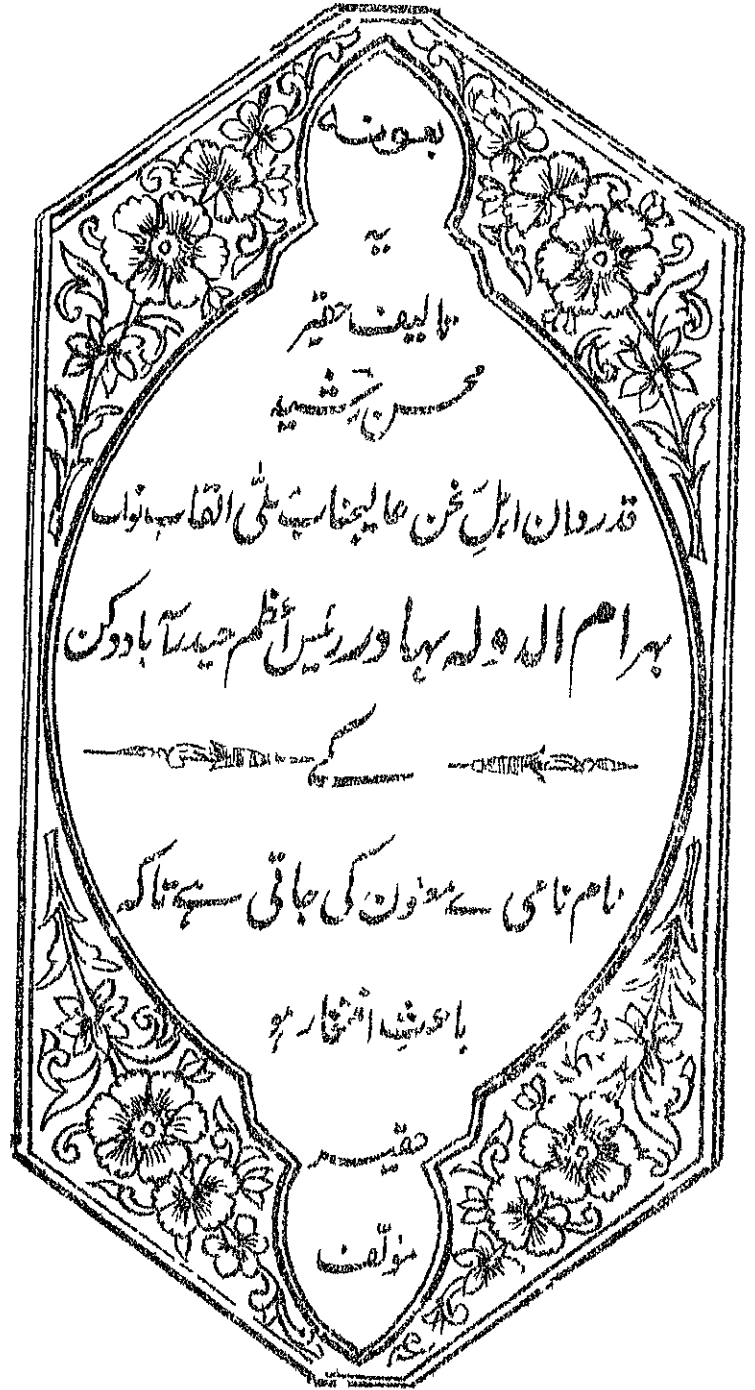 بعونہ
یہ
تالیف حقیر
محسن رشید
قدردان اہلِ سخن عالیجناب معلّٰی القاب نواب
بہرام الدولہ بہادر رئیس اعظم حیدرآباد دکن
کے
نام نامی سے معنون کی جاتی ہے تاکہ
باعث افتخار ہو
حقیر
مولّف